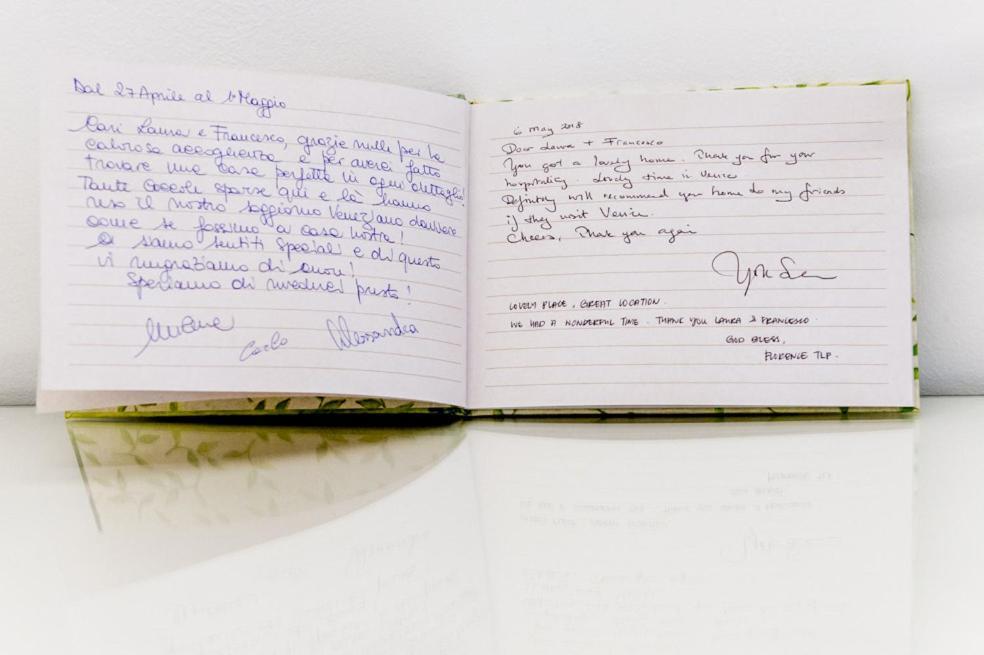 Dal 27 Aprile al 1° Maggio
Cari Laura e Francesco, grazie mille per la
calorosa accoglienza e per averci fatto
trovare una casa perfetta in ogni dettaglio!
Tante coccole sparse qui e là hanno
reso il nostro soggiorno Veneziano davvero
come se fossimo a casa nostra!
Ci siamo sentiti speciali e di questo
vi ringraziamo di cuore!
Speriamo di rivederci presto!
Carlo Alessandra
6 May 2018
Dear Laura + Francesco
You got a lovely home. Thank you for your
hospitality. Lovely time in Venice
Definitely will recommend your home to my friends
if they visit Venice.
Cheers, Thank you again
LOVELY PLACE, GREAT LOCATION.
WE HAD A WONDERFUL TIME. THANK YOU LAURA & FRANCESCO.
GOD BLESS,
FLORENCE TLP.